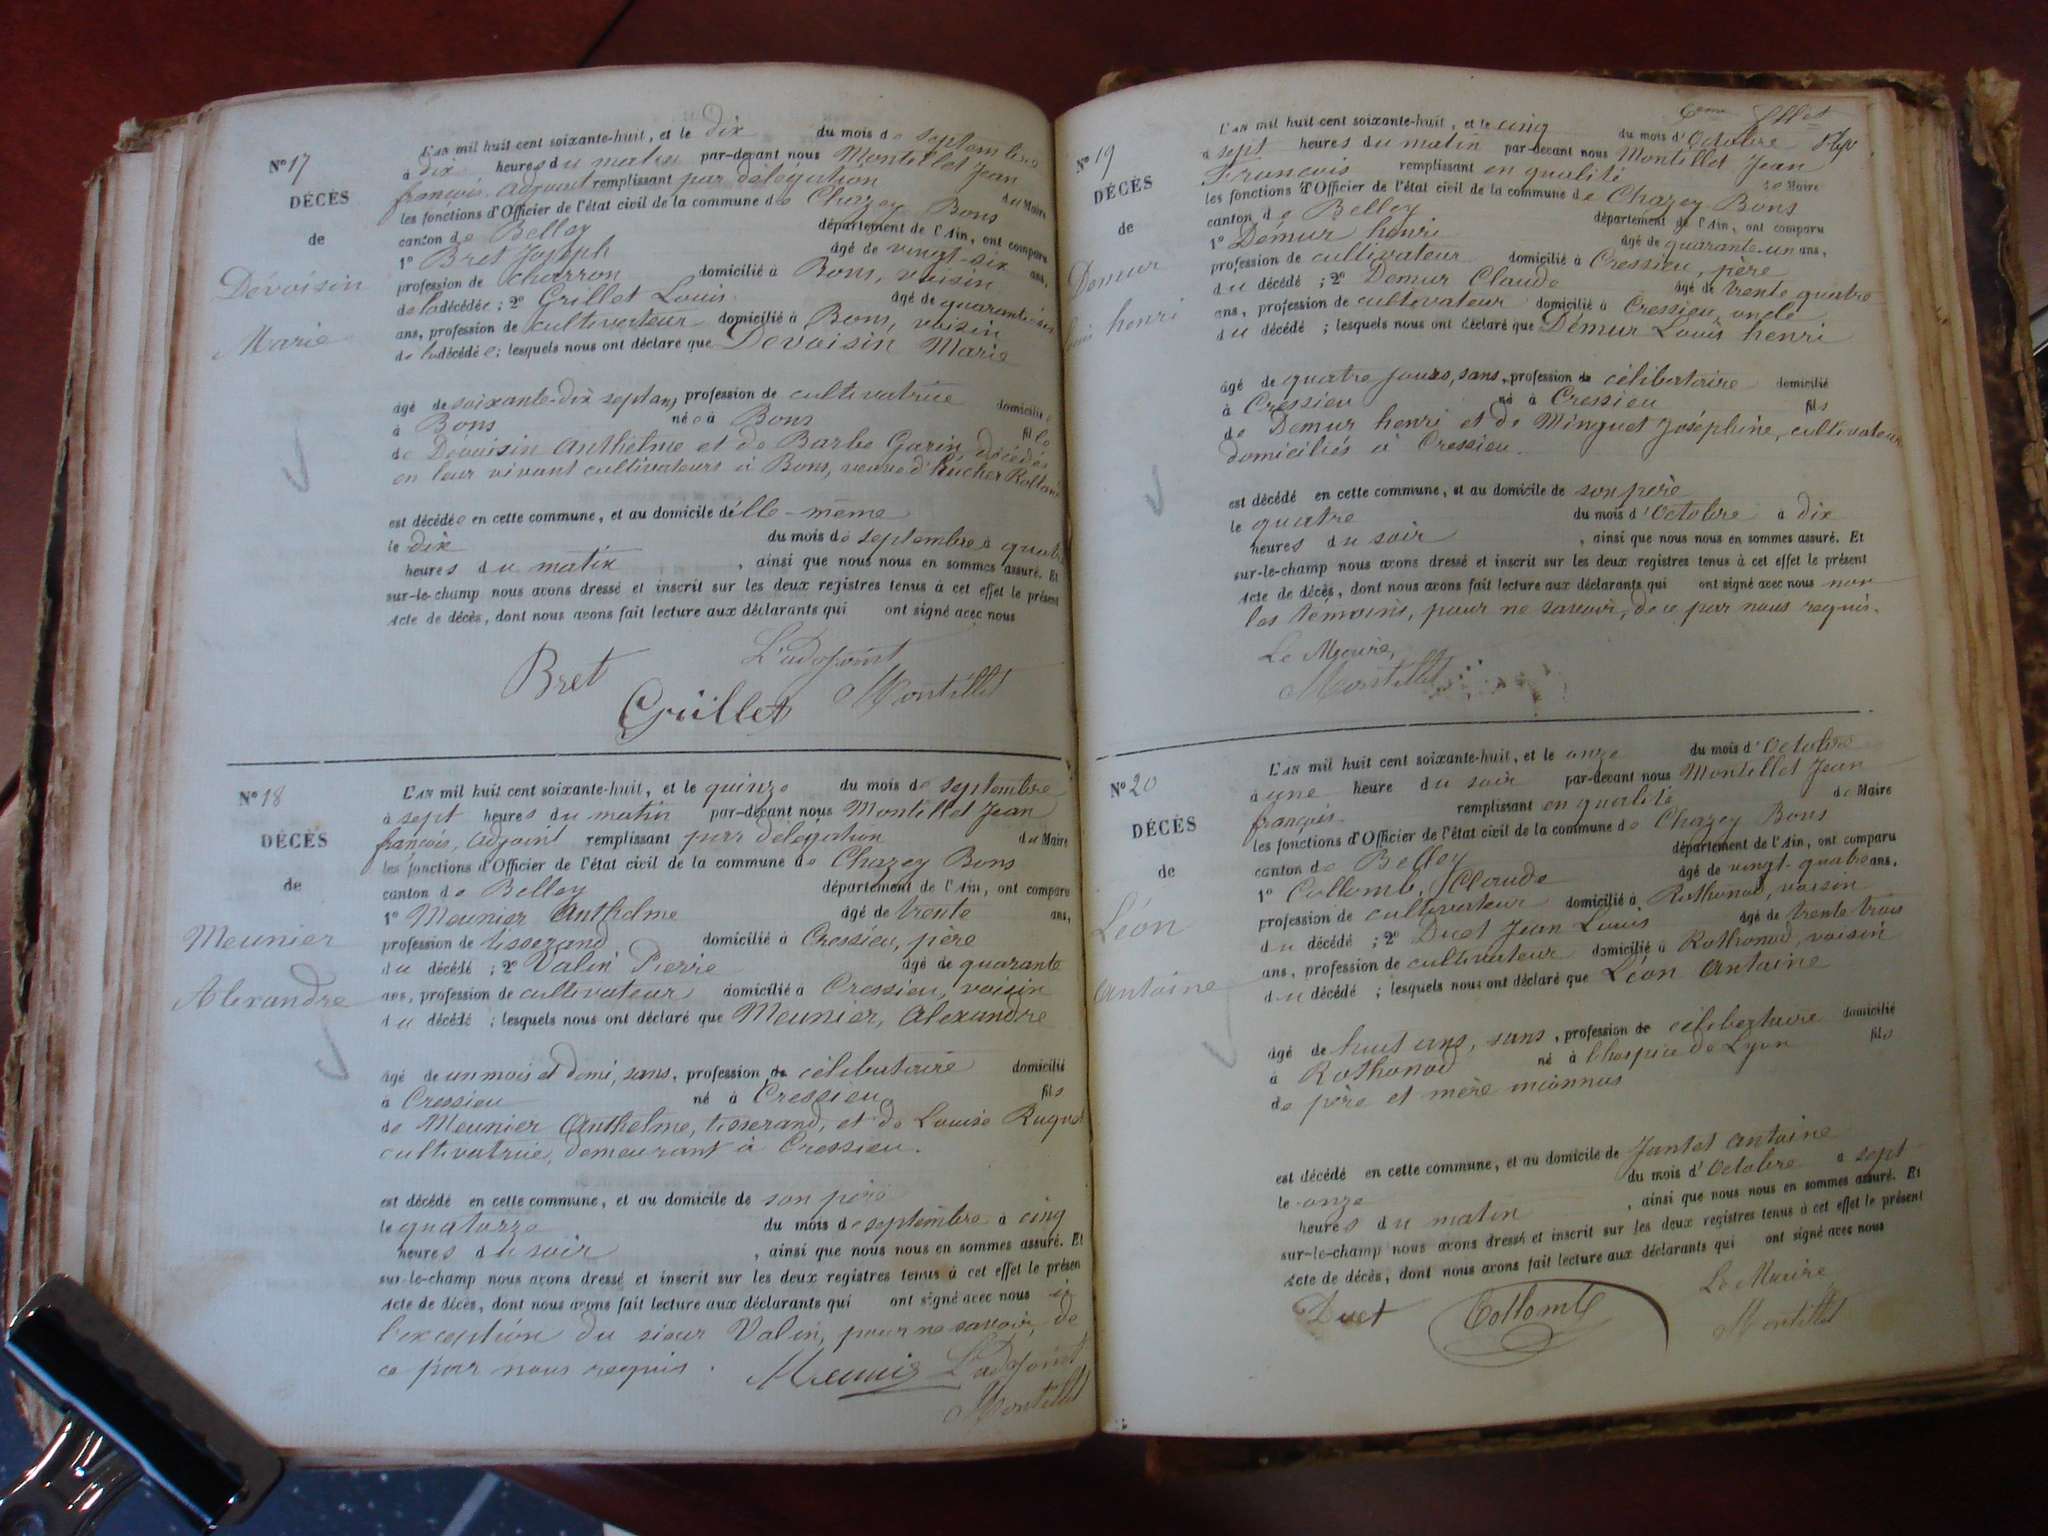 N° 17
DÉCÈS
de
Dévoisin
Marie
L'AN mil huit cent soixante-huit, et le dix du mois de septembre
à dix heures du matin par-devant nous Montillet Jean
françois, adjoint remplissant par délégation du Maire
les fonctions d'Officier de l'état civil de la commune de Chazey Bons
canton de Belley département de l'Ain, ont comparu
1° Bret Joseph âgé de vingt-six ans,
profession de charron domicilié à Bons, voisin
de la décédée; 2° Grillet Louis âgé de quarante-six
ans, profession de cultivateur domicilié à Bons, voisin
de la décédée; lesquels nous ont déclaré que Dévoisin Marie
âgé de soixante-dix sept ans, profession de cultivatrice domicilié
à Bons née à Bons fille
de Dévoisin Anthelme et de Barbe Garin, décédés
en leur vivant cultivateurs à Bons, veuve d'Hucher Rolland
est décédée en cette commune, et au domicile d'elle-même
le dix du mois de septembre à quatre
heures du matin, ainsi que nous nous en sommes assuré. Et
sur-le-champ nous avons dressé et inscrit sur les deux registres tenus à cet effet le présent
Acte de décès, dont nous avons fait lecture aux déclarants qui ont signé avec nous
Bret L'adjoint
Grillet Montillet
N° 18
DÉCÈS
de
Meunier
Alexandre
L'AN mil huit cent soixante-huit, et le quinze du mois de septembre
à sept heures du matin par-devant nous Montillet Jean
françois, adjoint remplissant par délégation du Maire
les fonctions d'Officier de l'état civil de la commune de Chazey Bons
canton de Belley département de l'Ain, ont comparu
1° Meunier Anthelme âgé de trente ans,
profession de tisserand domicilié à Cressieu, père
du décédé; 2° Valin Pierre âgé de quarante
ans, profession de cultivateur domicilié à Cressieu, voisin
du décédé; lesquels nous ont déclaré que Meunier, Alexandre
âgé de un mois et demi, sans, profession de célibataire domicilié
à Cressieu né à Cressieu fils
de Meunier Anthelme, tisserand, et de Louise Ruguet
cultivatrice, demeurant à Cressieu.
est décédé en cette commune, et au domicile de son père
le quatorze du mois de septembre à cinq
heures du soir, ainsi que nous nous en sommes assuré. Et
sur-le-champ nous avons dressé et inscrit sur les deux registres tenus à cet effet le présent
Acte de décès, dont nous avons fait lecture aux déclarants qui ont signé avec nous à
l'exception du sieur Valin, pour ne savoir, de
ce par nous requis. Meunier L'adjoint
Montillet
6eme fllet
N° 19
DÉCÈS
de
Demur
Louis henri
L'AN mil huit cent soixante-huit, et le cinq du mois d'Octobre
à sept heures du matin par-devant nous Montillet Jean
François remplissant en qualité de Maire
les fonctions d'Officier de l'état civil de la commune de Chazey Bons
canton de Belley département de l'Ain, ont comparu
1° Démur henri âgé de quarante-un ans,
profession de cultivateur domicilié à Cressieu, père
du décédé; 2° Demur Claude âgé de trente quatre
ans, profession de cultivateur domicilié à Cressieu, oncle
du décédé; lesquels nous ont déclaré que Démur Louis henri
âgé de quatre jours, sans, profession de célibataire domicilié
à Cressieu né à Cressieu fils
de Demur henri et de Minguet Joséphine, cultivateurs
domiciliés à Cressieu.
est décédé en cette commune, et au domicile de son père
le quatre du mois d'Octobre à dix
heures du soir, ainsi que nous nous en sommes assuré. Et
sur-le-champ nous avons dressé et inscrit sur les deux registres tenus à cet effet le présent
Acte de décès, dont nous avons fait lecture aux déclarants qui ont signé avec nous non
les témoins, pour ne savoir, de ce par nous requis.
Le Maire,
Montillet
N° 20
DÉCÈS
de
Léon
Antoine
L'AN mil huit cent soixante-huit, et le onze du mois d'Octobre
à une heure du soir par-devant nous Montillet Jean
françois remplissant en qualité de Maire
les fonctions d'Officier de l'état civil de la commune de Chazey Bons
canton de Belley département de l'Ain, ont comparu
1° Collomb, Claude âgé de vingt-quatre ans,
profession de cultivateur domicilié à Rothonod, voisin
du décédé; 2° Duet Jean Louis âgé de trente trois
ans, profession de cultivateur domicilié à Rothonod, voisin
du décédé; lesquels nous ont déclaré que Léon Antoine
âgé de huit ans, sans, profession de célibataire domicilié
à Rothonod né à l'hospice de Lyon fils
de père et mère inconnus
est décédé en cette commune, et au domicile de Jantet Antoine
le onze du mois d'Octobre à sept
heures du matin, ainsi que nous nous en sommes assuré. Et
sur-le-champ nous avons dressé et inscrit sur les deux registres tenus à cet effet le présent
Acte de décès, dont nous avons fait lecture aux déclarants qui ont signé avec nous
Duet Collomb Le Maire
Montillet